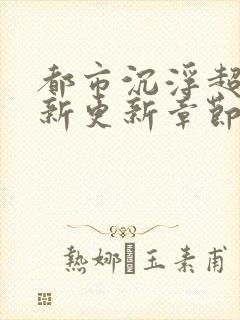 都市沉浮超
新更新章節
熱娜·玉素甫